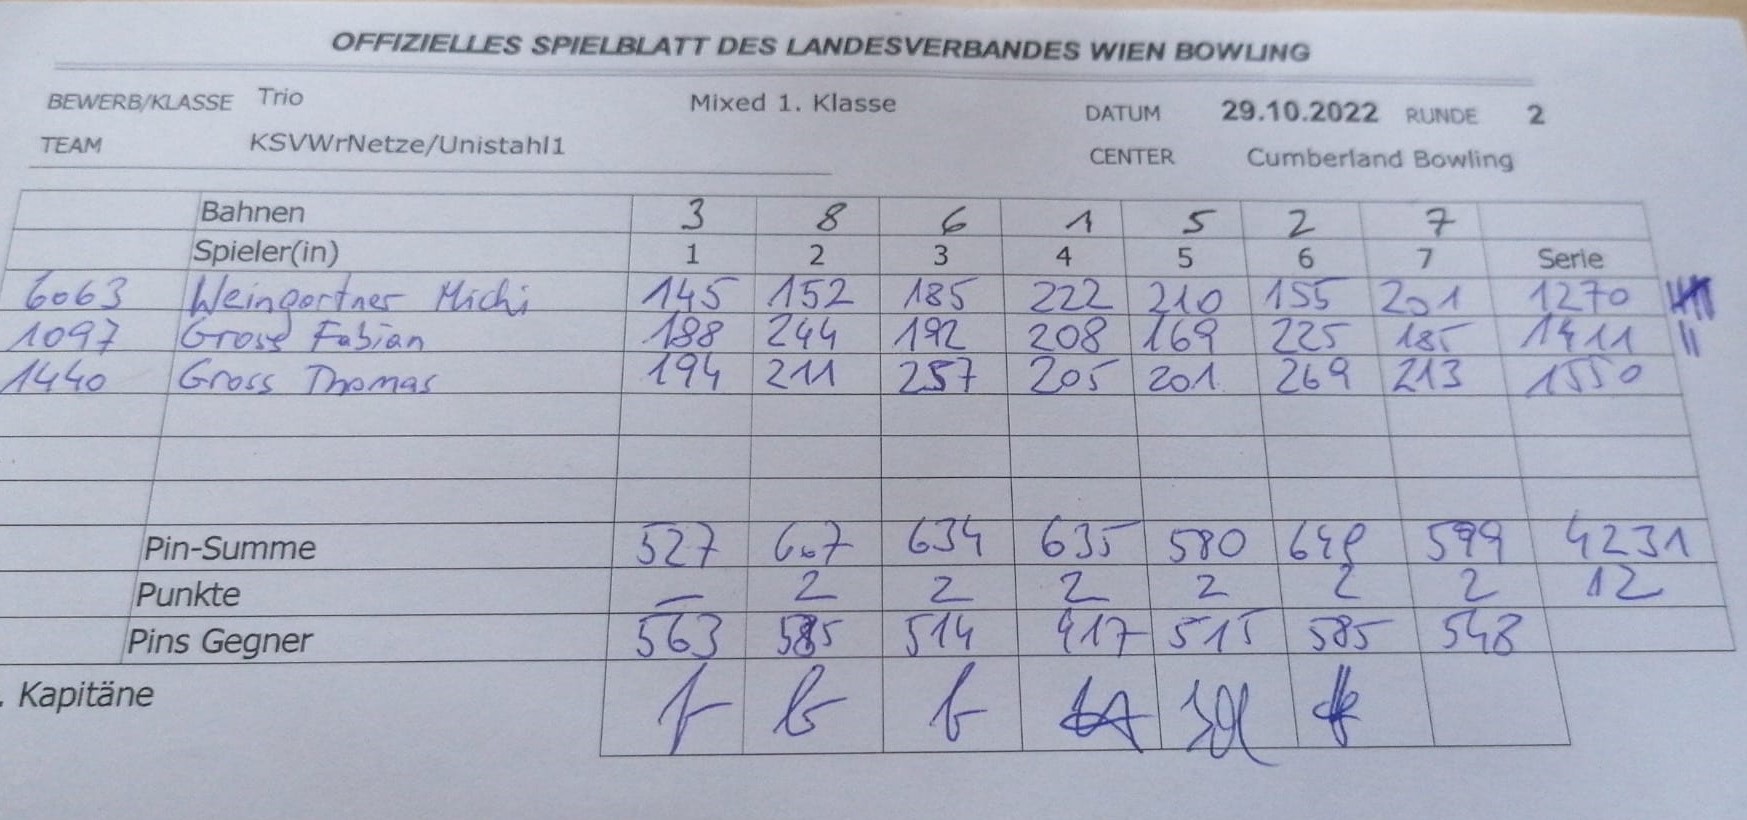 OFFIZIELLES SPIELBLATT DES LANDESVERBANDES WIEN BOWLING
BEWERB/KLASSE Trio Mixed 1. Klasse DATUM 29.10.2022 RUNDE 2
TEAM KSVWrNetze/Unistahl1 CENTER Cumberland Bowling
Bahnen 3 8 6 1 5 2 7
Spieler(in) 1 2 3 4 5 6 7 Serie
6063 Weingartner Michi 145 152 185 222 210 155 201 1270
1097 Gross Fabian 188 244 192 208 169 225 185 1411
1440 Gross Thomas 194 211 257 205 201 269 213 1550
Pin-Summe 527 607 634 635 580 649 599 4231
Punkte — 2 2 2 2 2 2 12
Pins Gegner 563 585 514 417 515 585 548
. Kapitäne